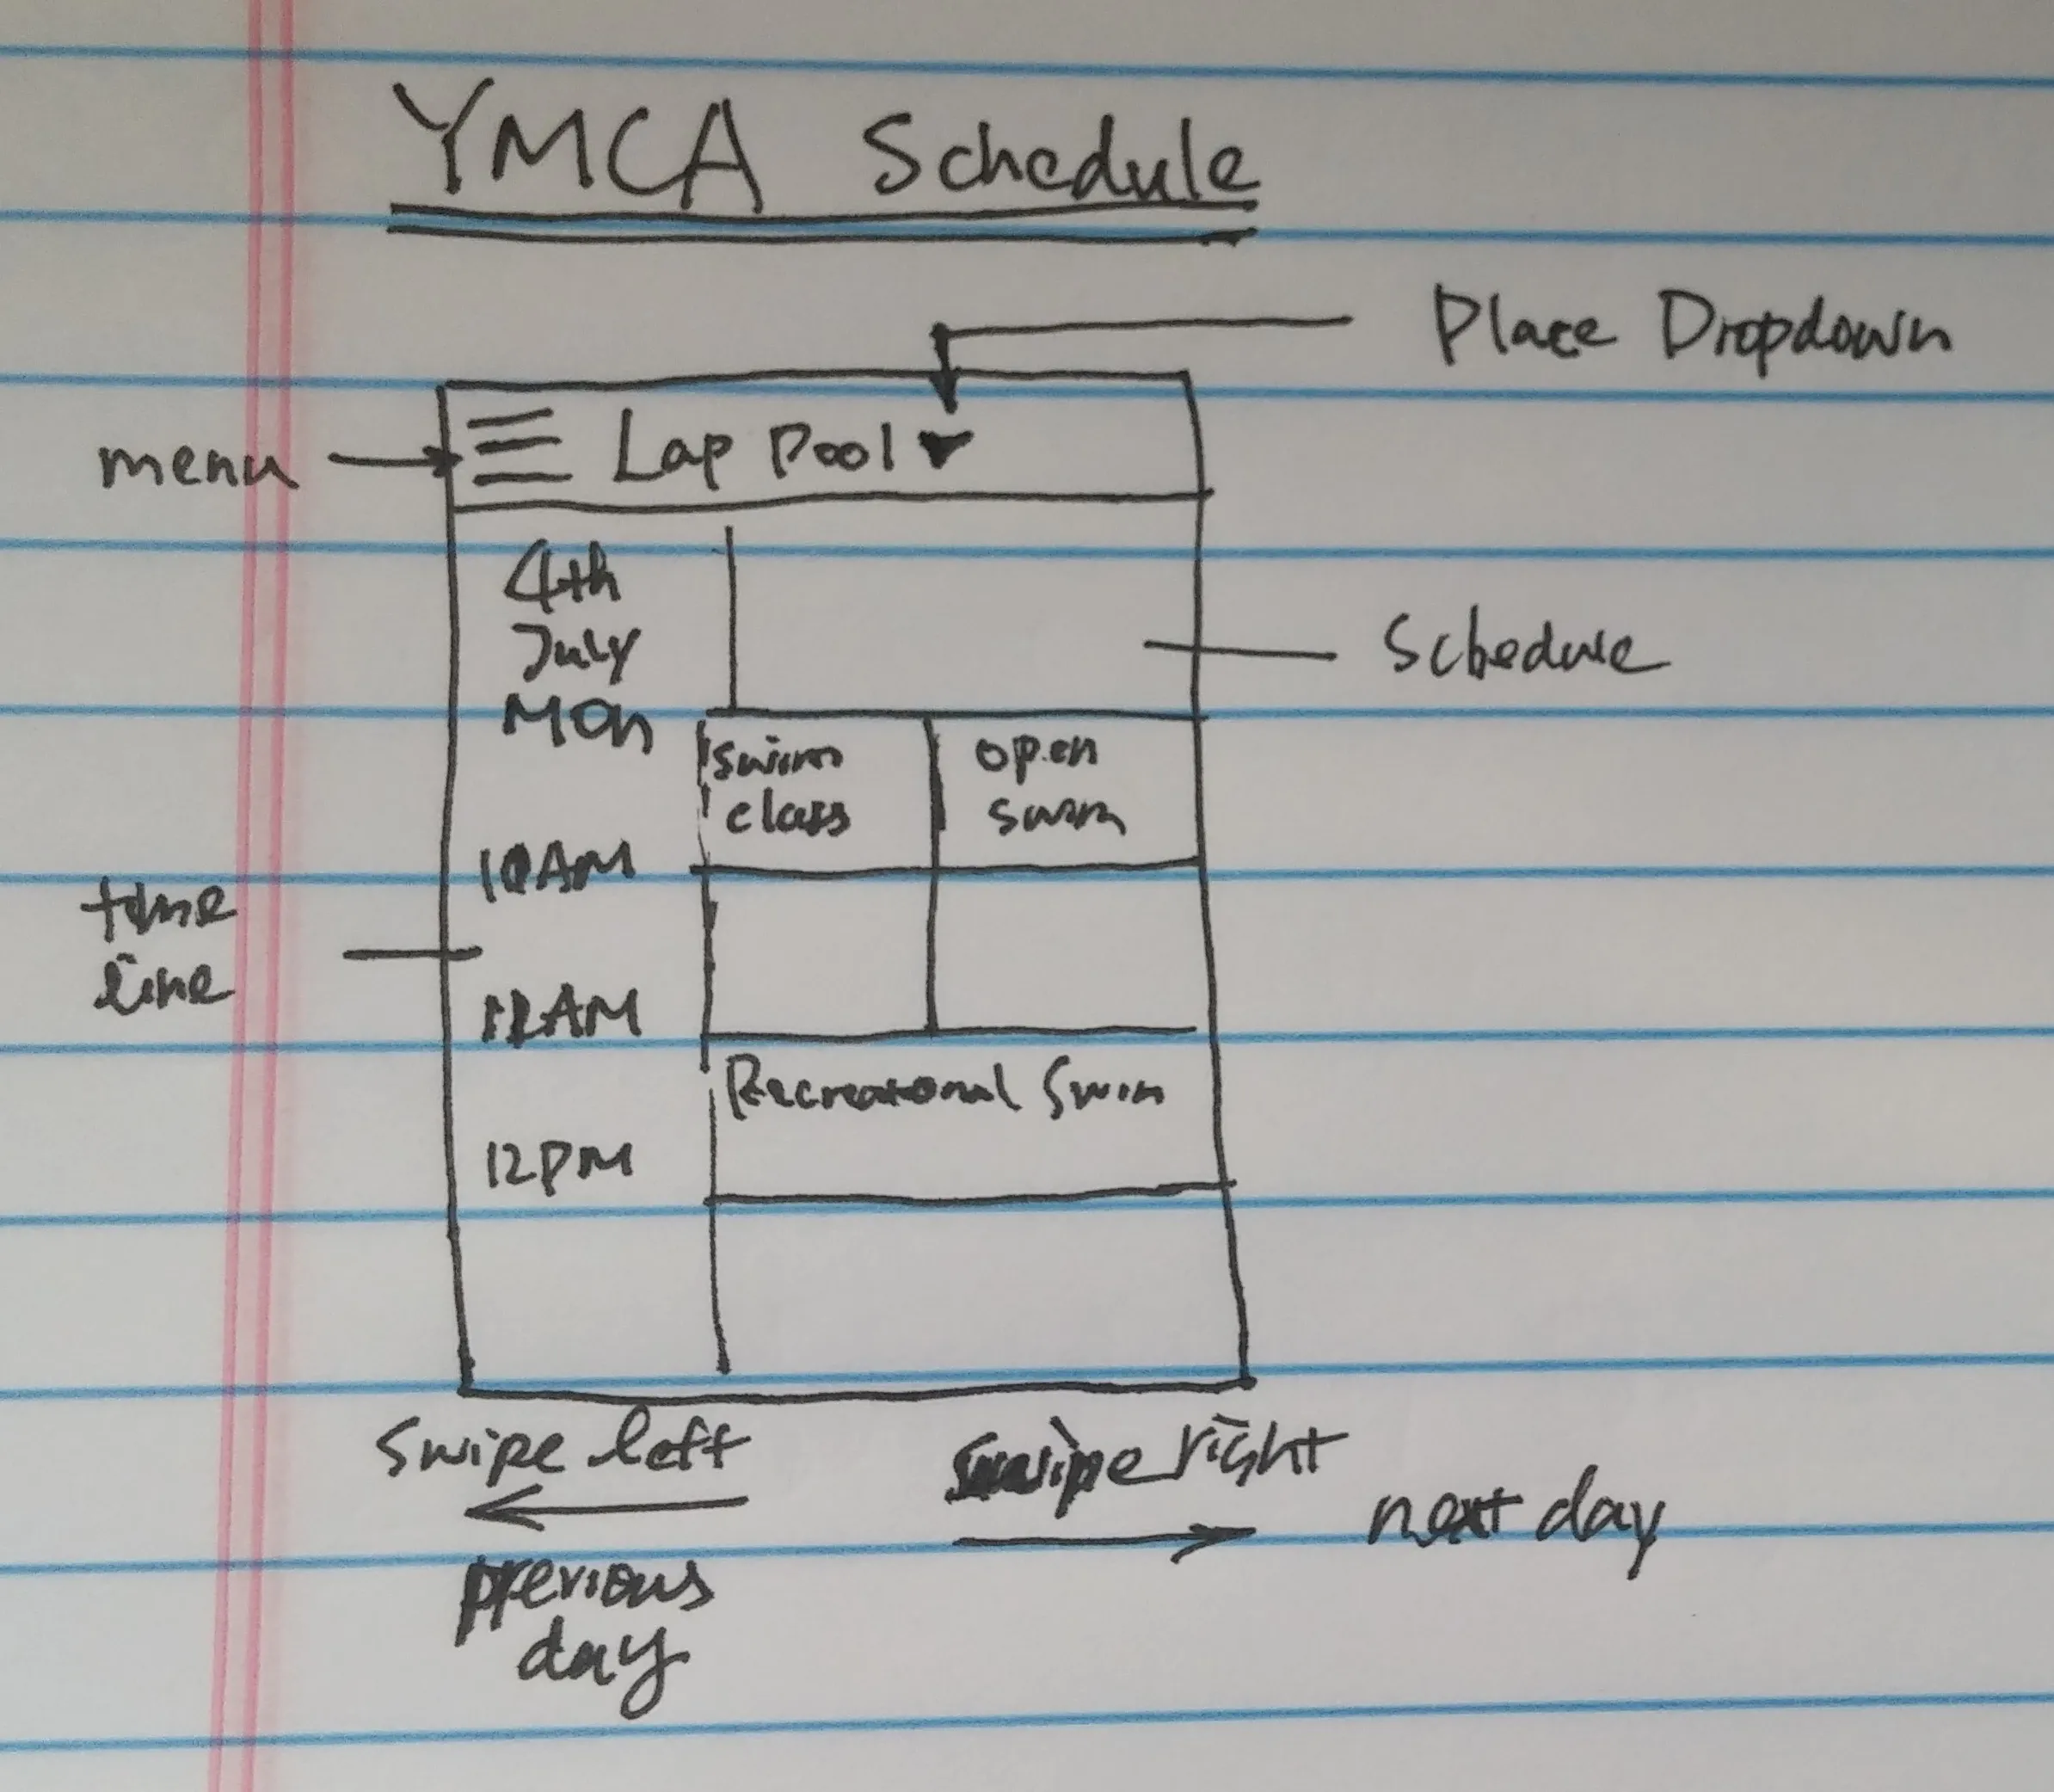 YMCA Schedule
Place Dropdown
menu
Lap Pool
4th
July
Mon
Schedule
swim
class
open
swim
10AM
time
line
11AM
Recreational Swim
12PM
swipe left
swipe right
previous
day
next day